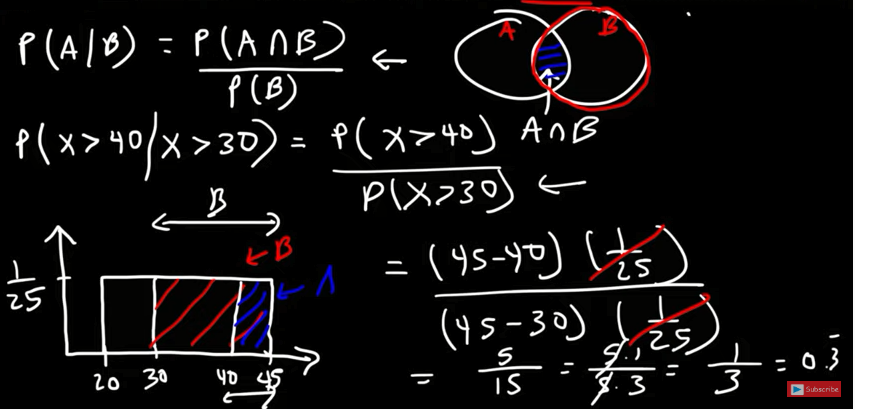 P(A|B) = P(A∩B) / P(B) ←
A B
A∩B
P(X>40|X>30) = P(X>40) / P(X>30) ←
B
← B
← A
1/25
20 30 40 45
= (45-40) (1/25) / (45-30) (1/25)
= 5/15 = 5·1/5·3 = 1/3 = 0.3̅
Subscribe